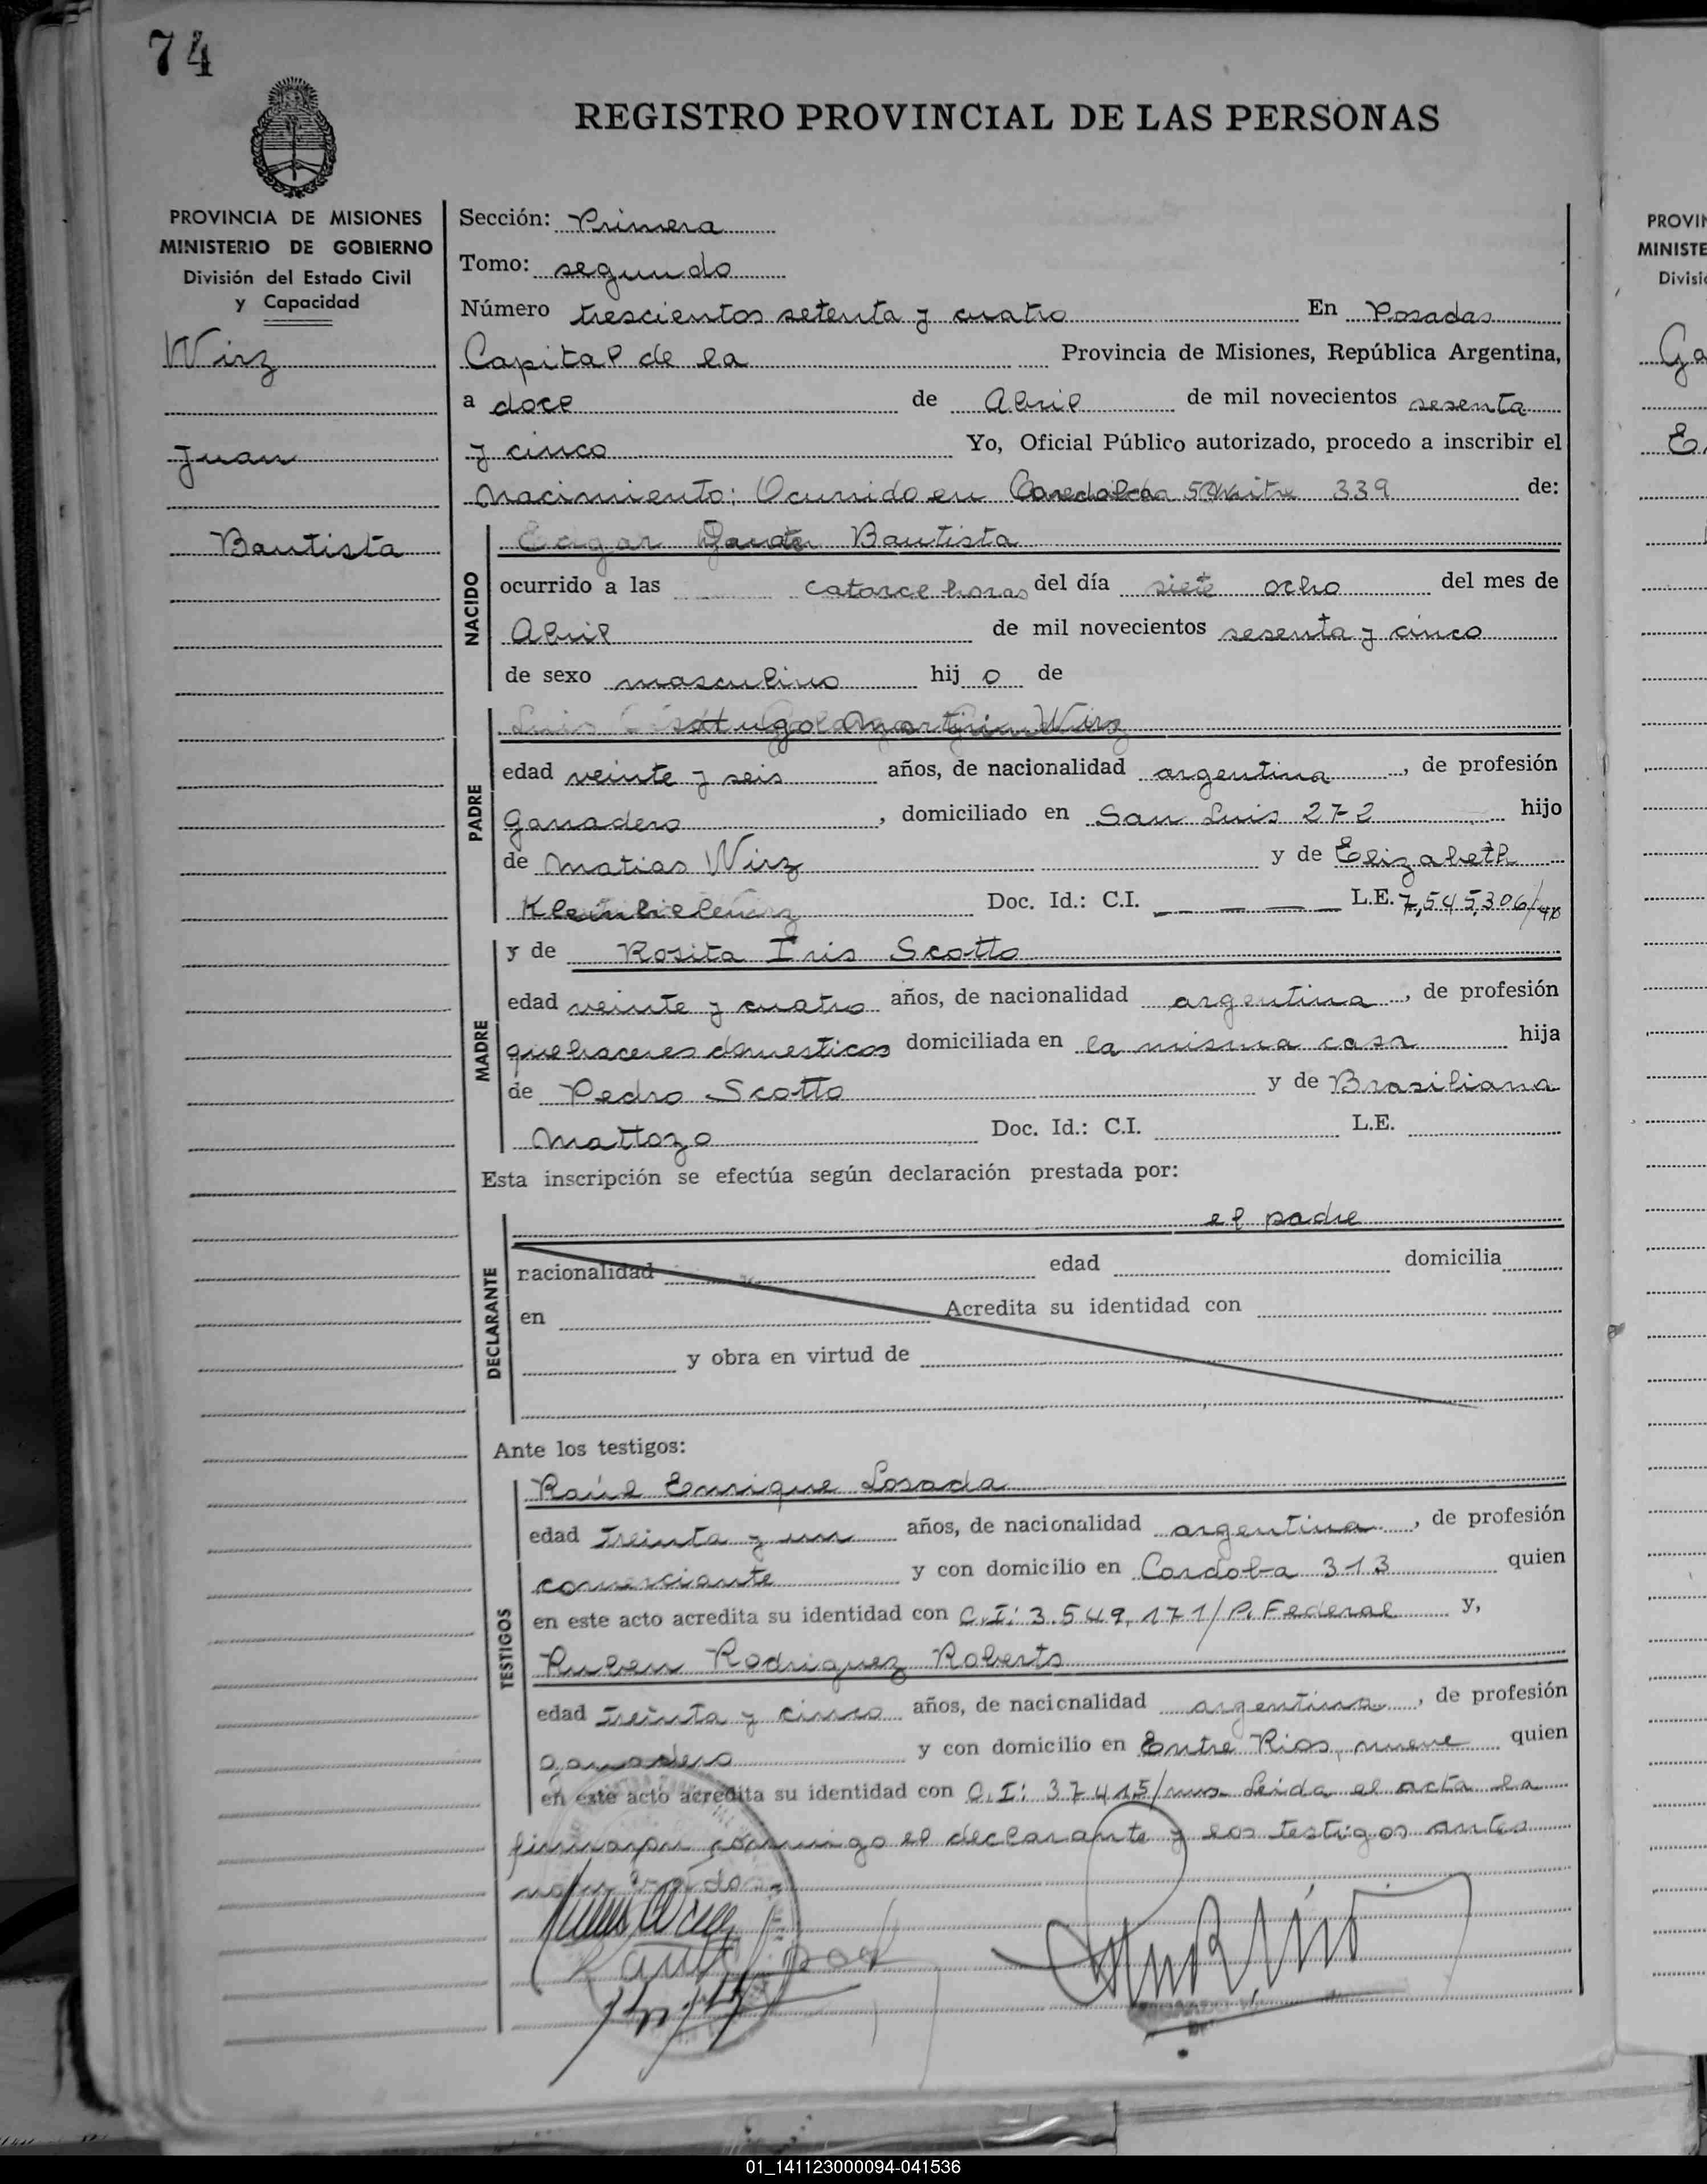 74
REGISTRO PROVINCIAL DE LAS PERSONAS
PROVINCIA DE MISIONES
MINISTERIO DE GOBIERNO
División del Estado Civil
y Capacidad
Wirz
Juan
Bautista
Sección: Primera
Tomo: segundo
Número trescientos setenta y cuatro En Posadas
Capital de la Provincia de Misiones, República Argentina,
a doce de Abril de mil novecientos sesenta
y cinco Yo, Oficial Público autorizado, procedo a inscribir el
Nacimiento: Ocurrido en 339 de:
NACIDO
Bautista
ocurrido a las catorce horas del día siete ocho del mes de
Abril de mil novecientos sesenta y cinco
de sexo masculino hij o de
PADRE
Hugo Martin Wirz
edad veinte y seis años, de nacionalidad argentina, de profesión
Ganadero, domiciliado en San Luis 272 hijo
de Matias Wirz y de Elizabeth
Doc. Id.: C.I. — — — L.E. 7,545,306/
MADRE
y de Rosita Iris Scotto
edad veinte y cuatro años, de nacionalidad argentina, de profesión
quehaceres domesticos domiciliada en la misma casa hija
de Pedro Scotto y de Brasiliana
Mattozo Doc. Id.: C.I. L.E.
Esta inscripción se efectúa según declaración prestada por:
DECLARANTE
el padre
nacionalidad edad domicilia
en Acredita su identidad con
y obra en virtud de
Ante los testigos:
TESTIGOS
Raúl Enrique Losada
edad treinta y un años, de nacionalidad argentina, de profesión
comerciante y con domicilio en Cordoba 313 quien
en este acto acredita su identidad con C.I: 3.549,171/P. Federal y,
Ruben Rodriguez Roberts
edad treinta y cinco años, de nacionalidad argentina, de profesión
ganadero y con domicilio en Entre Rios, nueve quien
en este acto acredita su identidad con C.I: 37415/mns. Leida el acta la
firmaron conmigo el declarante y los testigos antes
PROVIN
MINISTE
Divisió
Ga
01_141123000094-041536